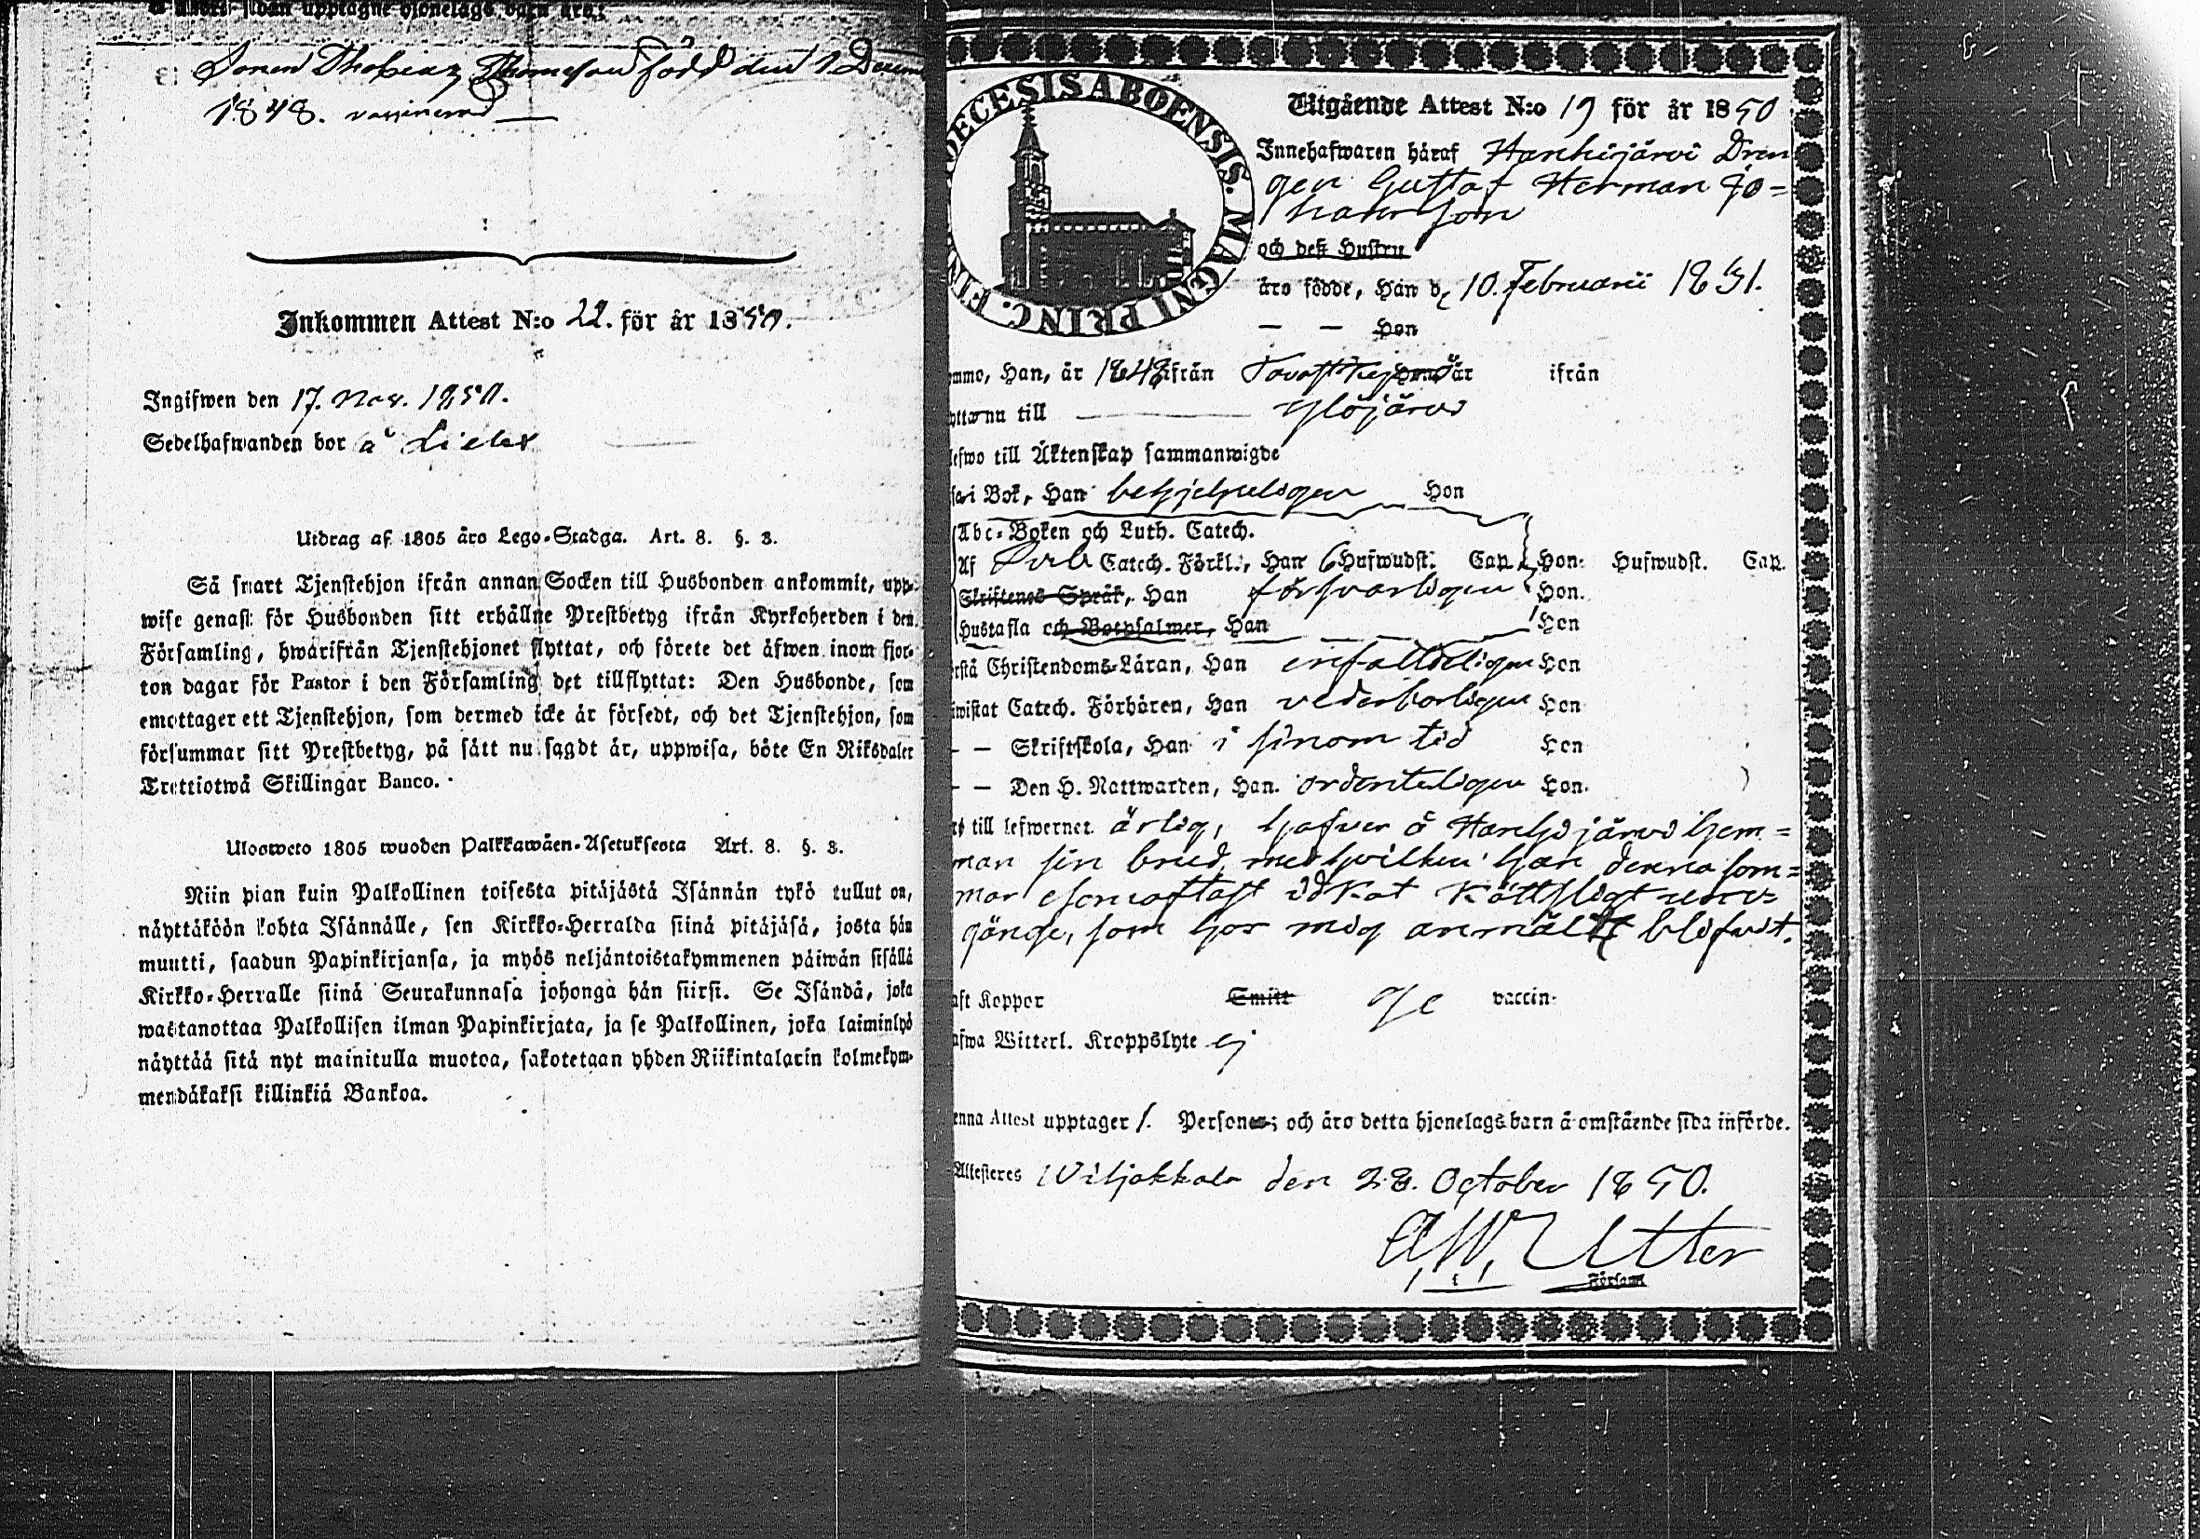 å andra sidan upptagne hjonelags barn äro:
Sonen Thobias Thomasson född den 1. Decem
1848. vaccinerad
Inkommen Attest N:o 22. för år 1850.
Ingifwen den 17. Nov. 1850.
Sedelhafwanden bor å Lielax
Utdrag af 1805 åro Lego-Stadga. Art. 8. §. 3.
Så snart Tjenstehjon ifrån annan Socken till Husbonden ankommit, upp-
wise genast för Husbonden sitt erhållne Prestbetyg ifrån Kyrkoherden i den
Församling, hwarifrån Tjenstehjonet flyttat, och förete det äfwen inom fjor-
ton dagar för Pastor i den Församling det tillflyttat: Den Husbonde, som
emottager ett Tjenstehjon, som dermed icke är försedt, och det Tjenstehjon, som
försummar sitt Prestbetyg, på sätt nu sagdt är, uppwisa, böte En Riksdaler
Trettiotwå Skillingar Banco.
Ulosweto 1805 wuoden Palkkawäen-Asetuksesta Art. 8. §. 3.
Niin pian kuin Palkollinen toisesta pitäjästä Isännän tykö tullut on,
näyttäköön kohta Isännälle, sen Kirkko-Herralda siinä pitäjäsä, josta hän
muutti, saadun Papinkirjansa, ja myös neljäntoistakymmenen päiwän sisällä
Kirkko-Herralle siinä Seurakunnasa johonga hän siirsi. Se Isändä, joka
wastanottaa Palkollisen ilman Papinkirjata, ja se Palkollinen, joka laiminlyö
näyttää sitä nyt mainitulla muotoa, sakotetaan yhden Riikintalarin kolmekym-
mendäkaksi killinkiä Bankoa.
DECESIS ABOENSIS. MAGNI PRINC. FIN
Utgående Attest N:o 19 för år 1850
Innehafwaren häraf Hanhijärvi Dren
gen Gustaf Herman Jo=
hansson
och deß Hustru
äro födde, Han d. 10. Februarii 1831.
— — Hon
ommo, Han, år 1848 ifrån Tavastkyro år ifrån
yttanu till Ylöjärvi
lefwo till Äktenskap sammanwigde
sa i Bok, Han behjelpeligen Hon
Abc-Boken och Luth. Catech.
Af Catech. Förkl., Han 6 Hufwudst. Cap. Hon Hufwudst. Cap.
Skriftenes Språk, Han försvarligen Hon.
Hustafla och Botpsalmer, Han Hon
rstå Christendoms-Läran, Han enfalldeligen Hon
iwistat Catech. Förhören, Han vederbörligen Hon
— — Skriftskola, Han i sinom tid Hon
— — Den H. Nattwarden, Han. ordenteligen Hon.
till lefwernet ärlig, hafver å Hanhijärvi hem=
man sin brud, med hvilken han denna som=
mar esomoftast idkat köttsligt um=
gänge, som hos mig anmäldt blifvit.
aft Koppor Smitt vaccin.
afwa Witterl. Kroppslyte ej
enna Attest upptager 1. Personer; och äro detta hjonelags barn å omstående sida införde.
Attesteres Wiljakkala den 28. October 1850.
A. W. Utter
Församl